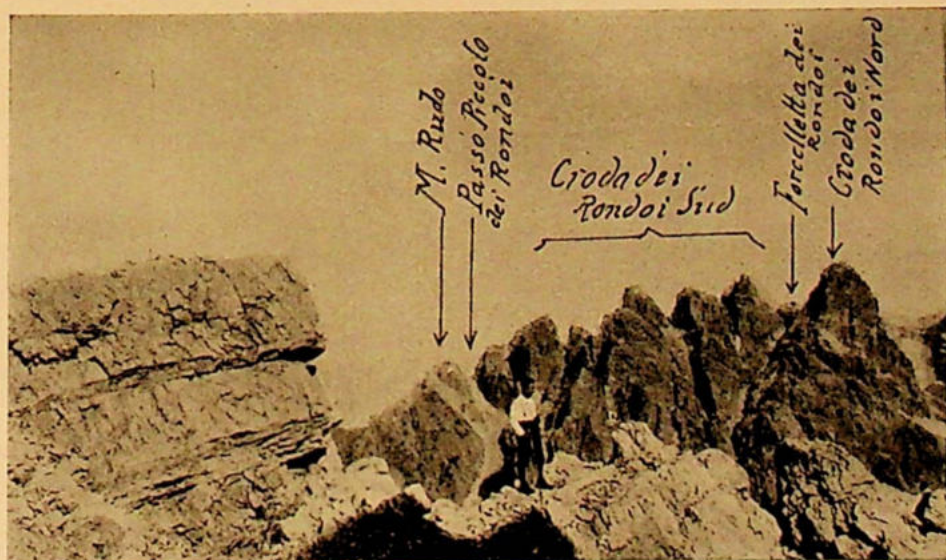 M. Rudo
Passo Piccolo
dei Rondoi
Croda dei
Rondoi Sud
Forcelletta dei
Rondoi
Croda dei
Rondoi Nord